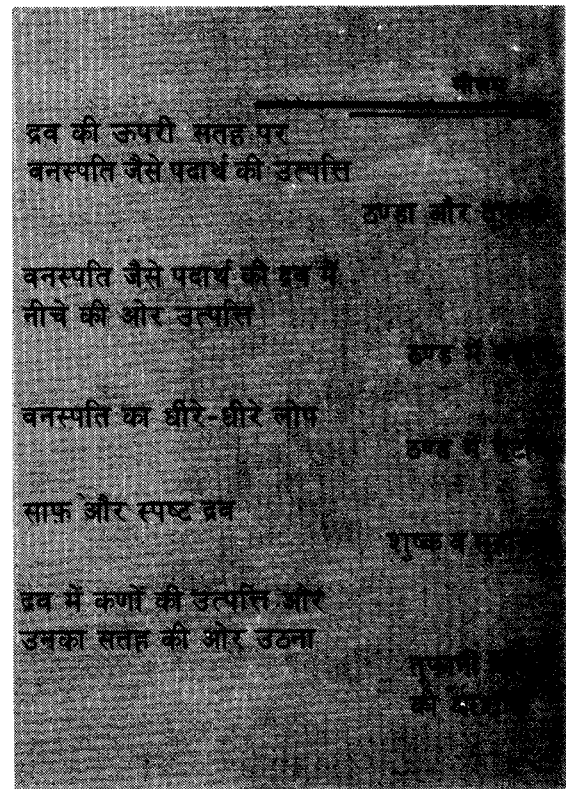 मौसम
द्रव की ऊपरी सतह पर
वनस्पति जैसे पदार्थ की उत्पत्ति
ठण्डा और
वनस्पति जैसे पदार्थ की द्रव में
नीचे की ओर उत्पत्ति
ठण्ड में
वनस्पति का धीरे-धीरे लोप
ठण्ड में
साफ़ और स्पष्ट द्रव
शुष्क व
द्रव में कणों की उत्पत्ति और
उनका सतह की ओर उठना
तूफानी